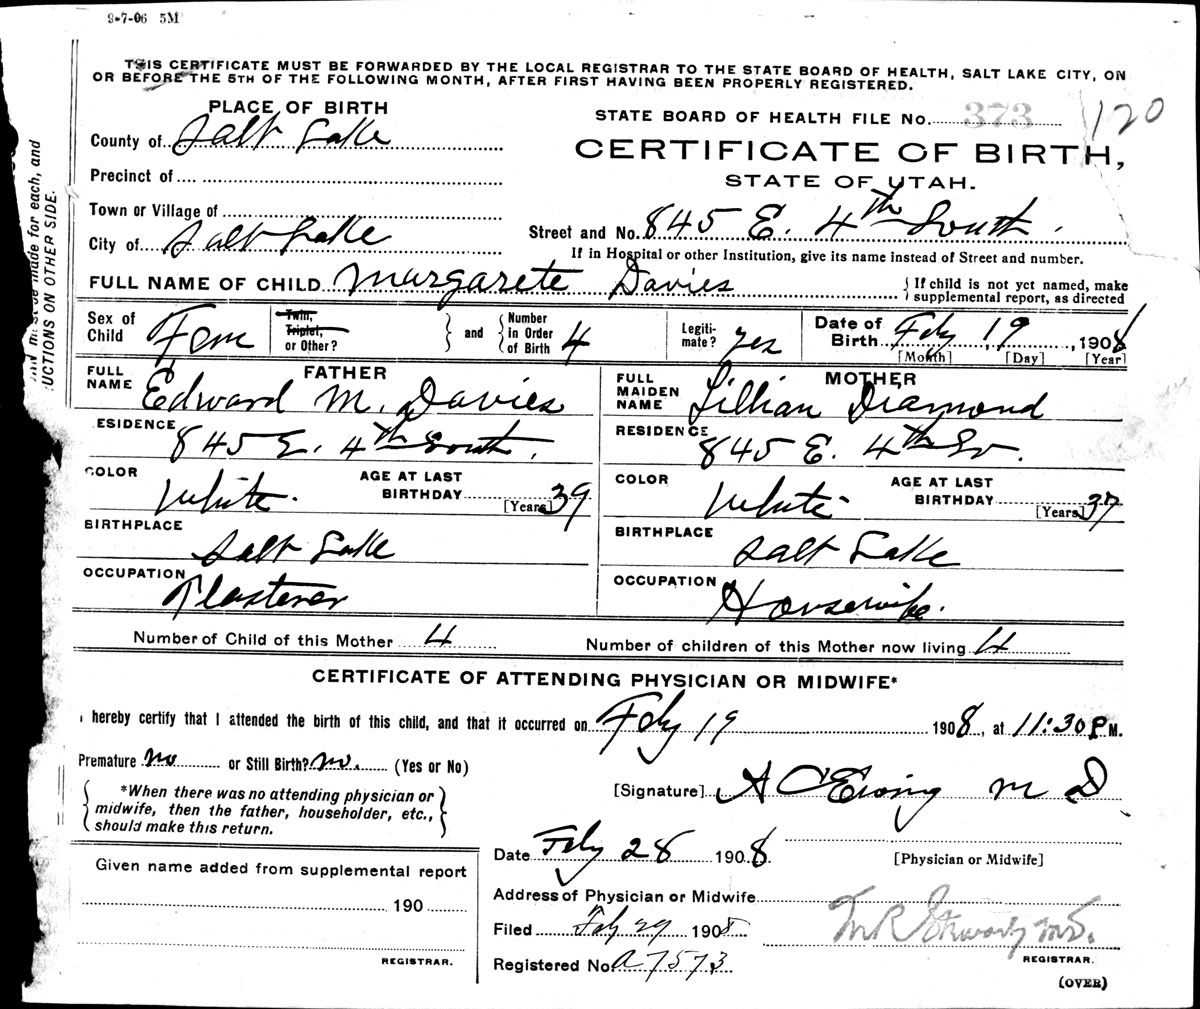 9-7-06 5M
THIS CERTIFICATE MUST BE FORWARDED BY THE LOCAL REGISTRAR TO THE STATE BOARD OF HEALTH, SALT LAKE CITY, ON
OR BEFORE THE 5TH OF THE FOLLOWING MONTH, AFTER FIRST HAVING BEEN PROPERLY REGISTERED.
made for each, and
UCTIONS ON OTHER SIDE.
PLACE OF BIRTH
STATE BOARD OF HEALTH FILE No. 373 120
County of Salt Lake
CERTIFICATE OF BIRTH,
Precinct of
STATE OF UTAH.
Town or Village of
City of Salt Lake
Street and No. 845 E. 4th South.
If in Hospital or other Institution, give its name instead of Street and number.
FULL NAME OF CHILD Margarete Davies { If child is not yet named, make supplemental report, as directed
Sex of Child Fem Twin, Triplet, or Other? } and { Number in Order of Birth 4 Legitimate? yes Date of Birth Feby 19, 1908 [Month] [Day] [Year]
FATHER
FULL NAME Edward M. Davies
ESIDENCE 845 E. 4th South.
COLOR White. AGE AT LAST BIRTHDAY 39 [Years]
BIRTHPLACE Salt Lake
OCCUPATION Plasterer
MOTHER
FULL MAIDEN NAME Lillian Diamond
RESIDENCE 845 E. 4th So.
COLOR White AGE AT LAST BIRTHDAY 37 [Years]
BIRTHPLACE Salt Lake
OCCUPATION Housewife.
Number of Child of this Mother 4 Number of children of this Mother now living 4
CERTIFICATE OF ATTENDING PHYSICIAN OR MIDWIFE*
I hereby certify that I attended the birth of this child, and that it occurred on Feby 19 1908, at 11:30 P M.
Premature no or Still Birth? no. (Yes or No)
[Signature] A C Ewing M D
{ *When there was no attending physician or midwife, then the father, householder, etc., should make this return. }
Date Feby 28 1908
[Physician or Midwife]
Given name added from supplemental report
190
REGISTRAR.
Address of Physician or Midwife
Filed Feby 29 1908
REGISTRAR.
Registered No. a7573
(OVER)